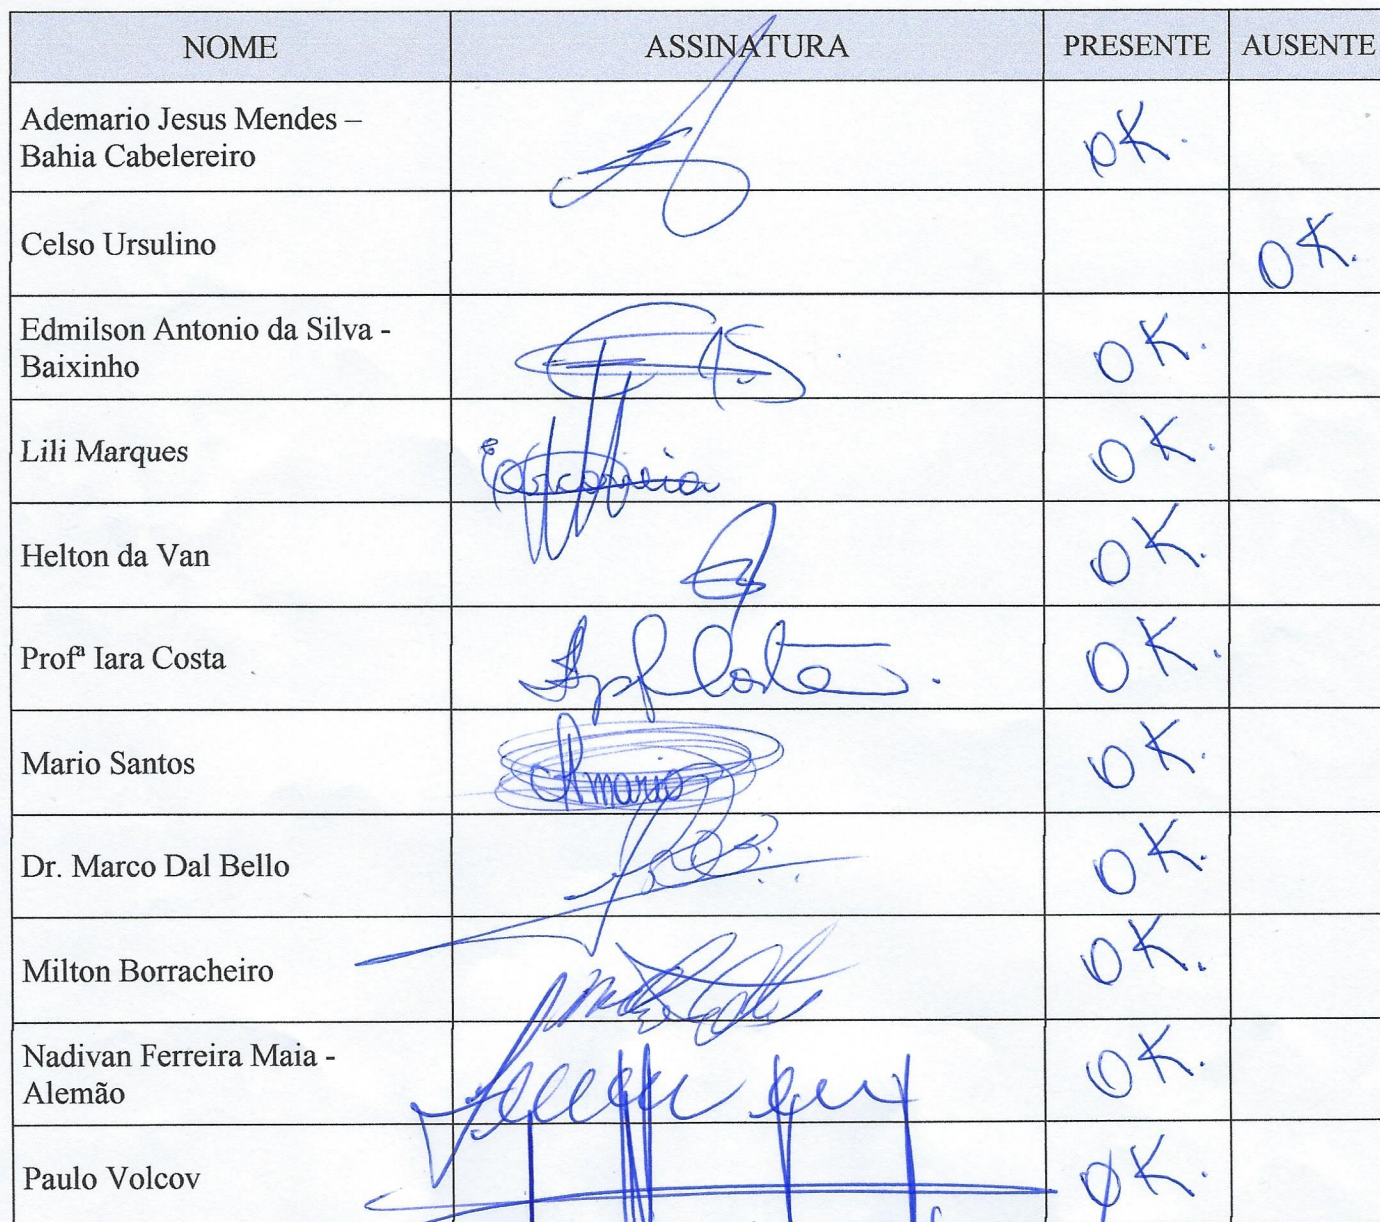 NOME ASSINATURA PRESENTE AUSENTE
Ademario Jesus Mendes –
Bahia Cabelereiro
OK.
Celso Ursulino
OK.
Edmilson Antonio da Silva -
Baixinho
OK.
Lili Marques
OK.
Helton da Van
OK.
Profª Iara Costa
Costa
OK.
Mario Santos
mario
OK.
Dr. Marco Dal Bello
OK.
Milton Borracheiro
OK.
Nadivan Ferreira Maia -
Alemão
OK.
Paulo Volcov
OK.